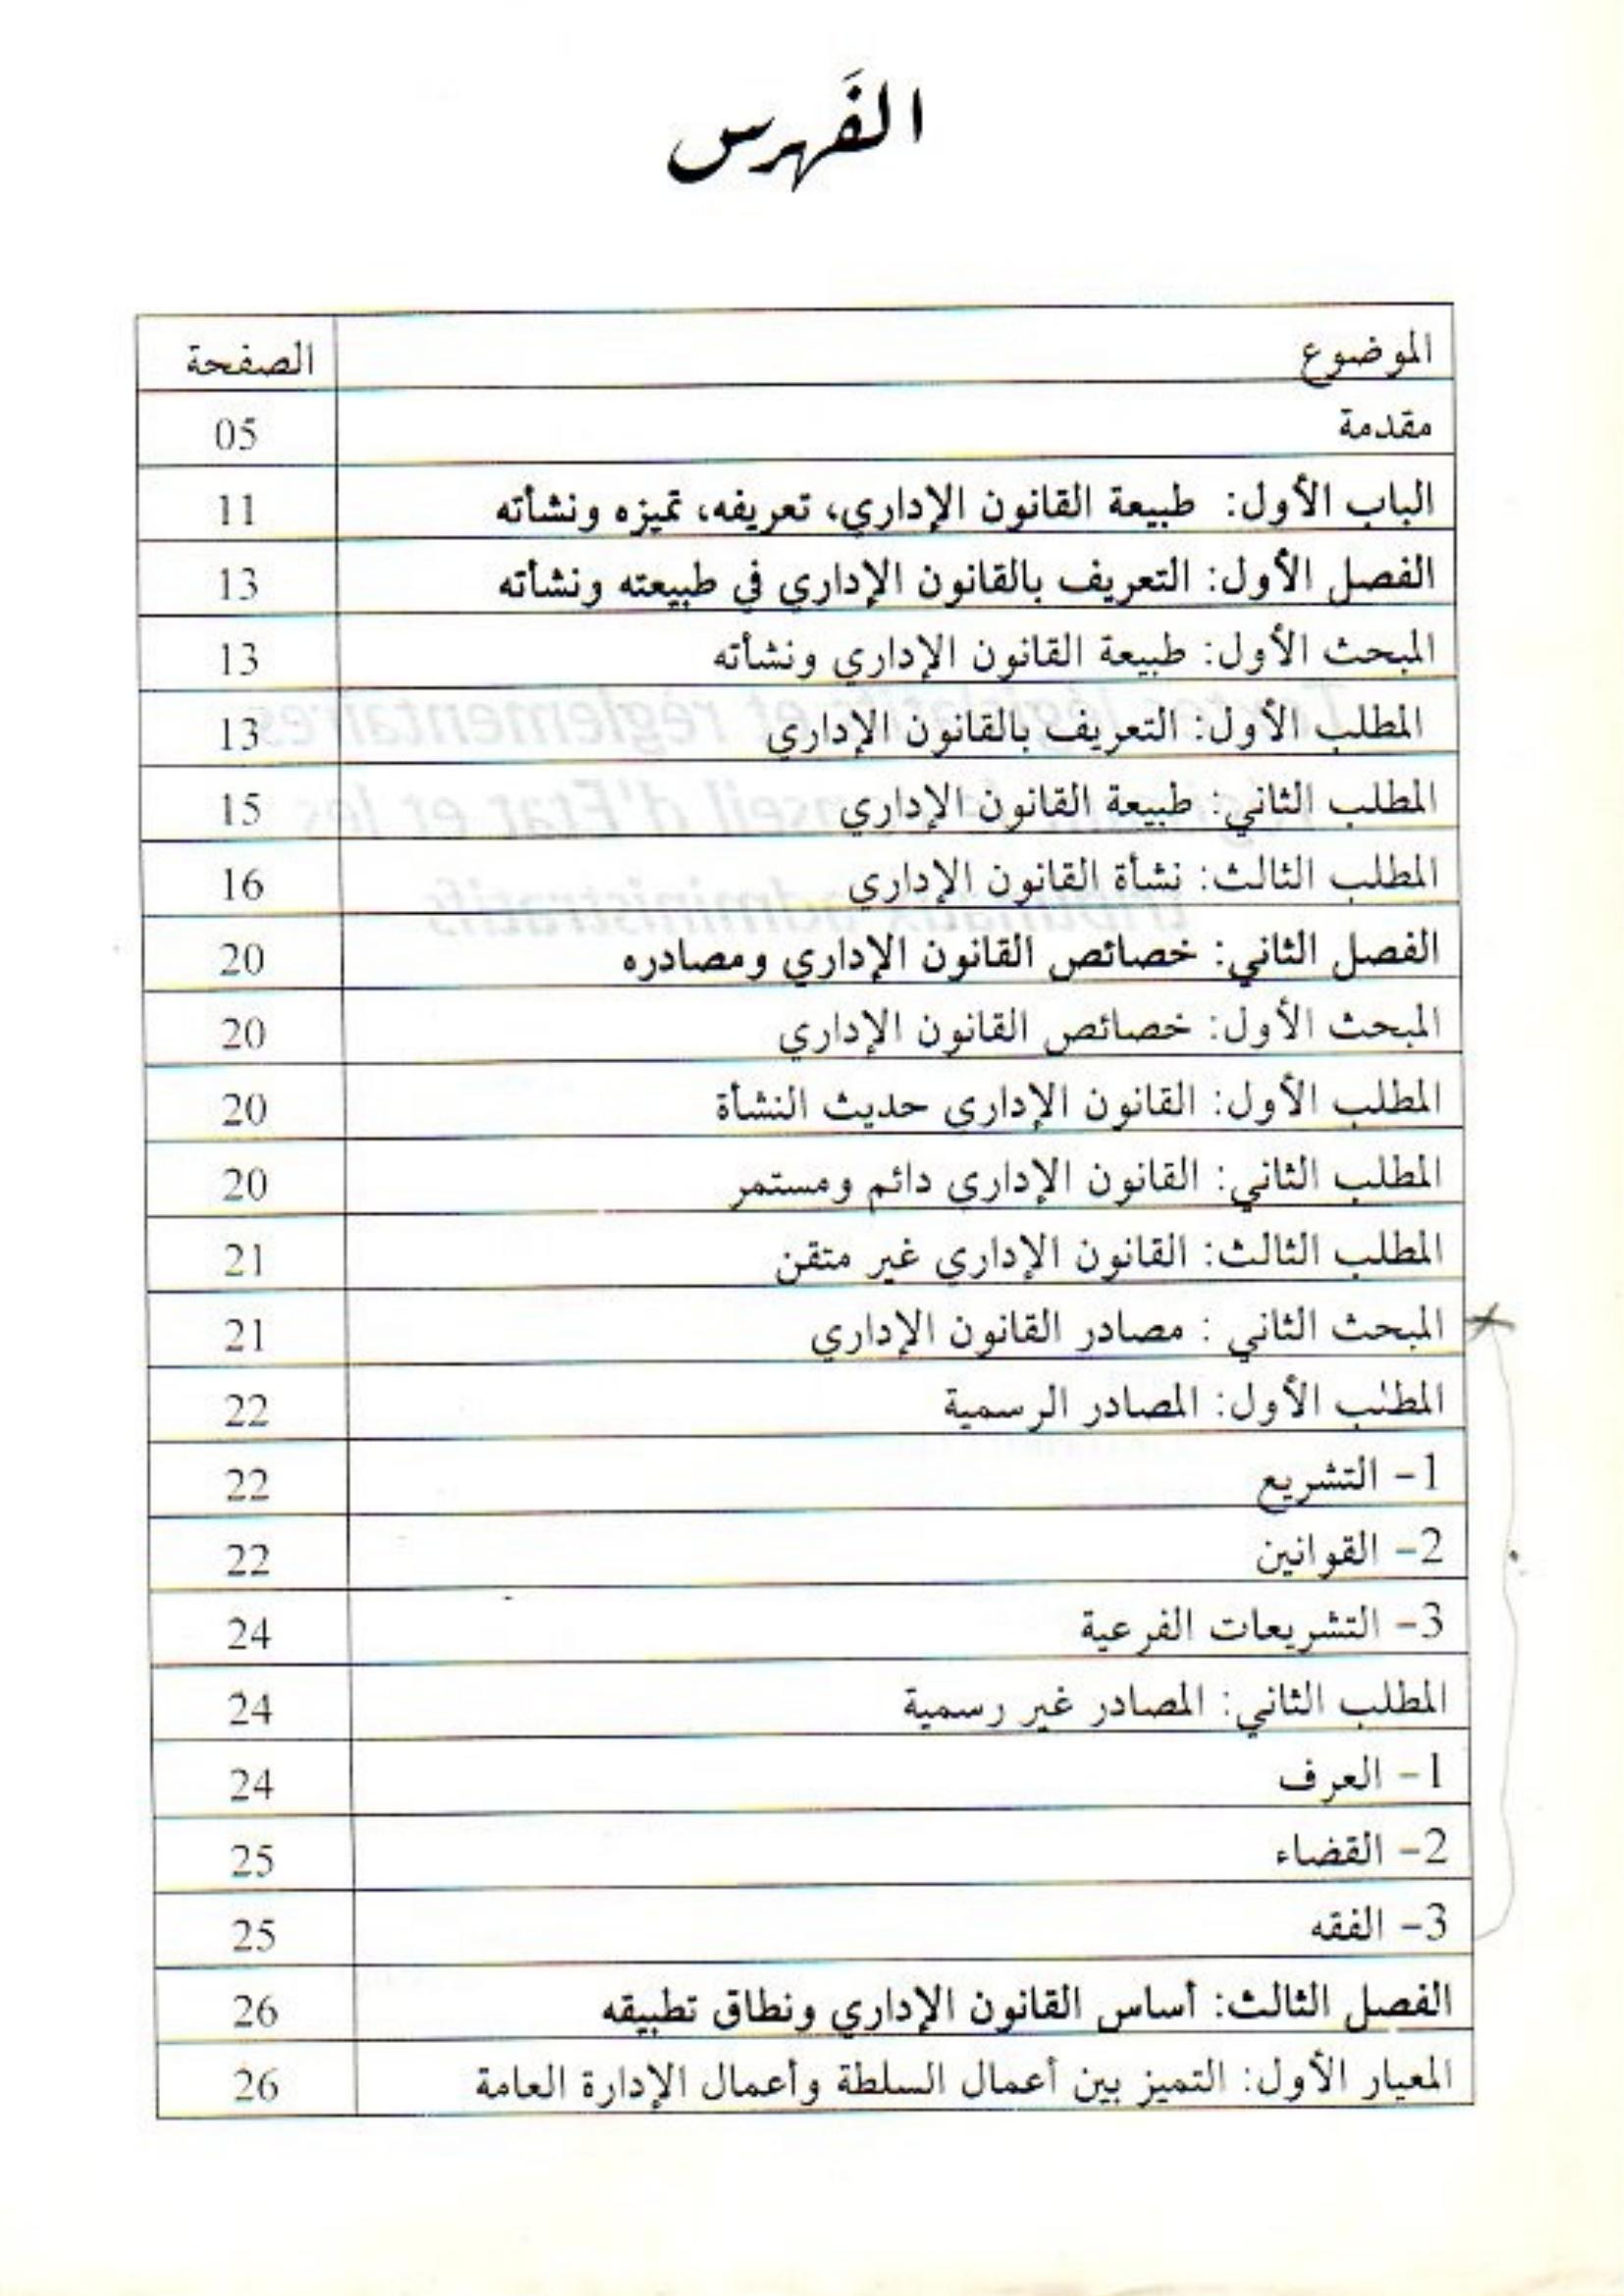 الفَهرس
الموضوع الصفحة
مقدمة 05
الباب الأول: طبيعة القانون الإداري، تعريفه، تميزه ونشأته 11
الفصل الأول: التعريف بالقانون الإداري في طبيعته ونشأته 13
المبحث الأول: طبيعة القانون الإداري ونشأته 13
المطلب الأول: التعريف بالقانون الإداري 13
المطلب الثاني: طبيعة القانون الإداري 15
المطلب الثالث: نشأة القانون الإداري 16
الفصل الثاني: خصائص القانون الإداري ومصادره 20
المبحث الأول: خصائص القانون الإداري 20
المطلب الأول: القانون الإداري حديث النشأة 20
المطلب الثاني: القانون الإداري دائم ومستمر 20
المطلب الثالث: القانون الإداري غير متقن 21
المبحث الثاني : مصادر القانون الإداري 21
المطلب الأول: المصادر الرسمية 22
1- التشريع 22
2- القوانين 22
3- التشريعات الفرعية 24
المطلب الثاني: المصادر غير رسمية 24
1- العرف 24
2- القضاء 25
3- الفقه 25
الفصل الثالث: أساس القانون الإداري ونطاق تطبيقه 26
المعيار الأول: التميز بين أعمال السلطة وأعمال الإدارة العامة 26